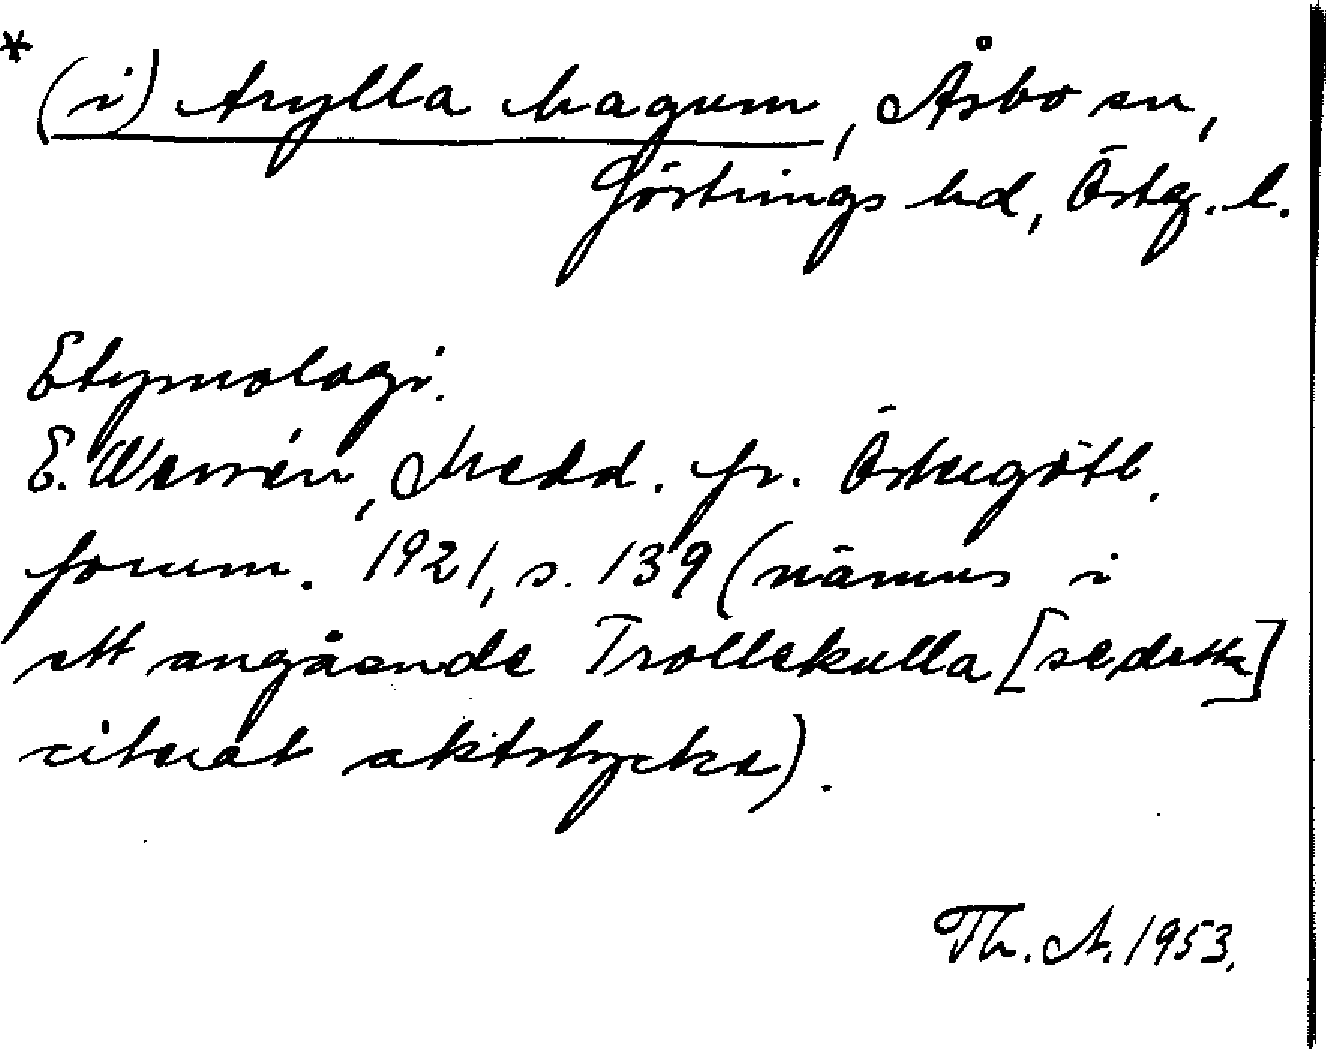 * (i) trylla hagum, Åsbo sn,
Göstrings hd, Östg. l.
Etymologi.
E. Wessén, Medd. fr. Östergötl.
fornm. 1921, s. 139 (nämns i
ett angående Trollekulla [se detta]
citerat aktstycke).
Th. A. 1953.